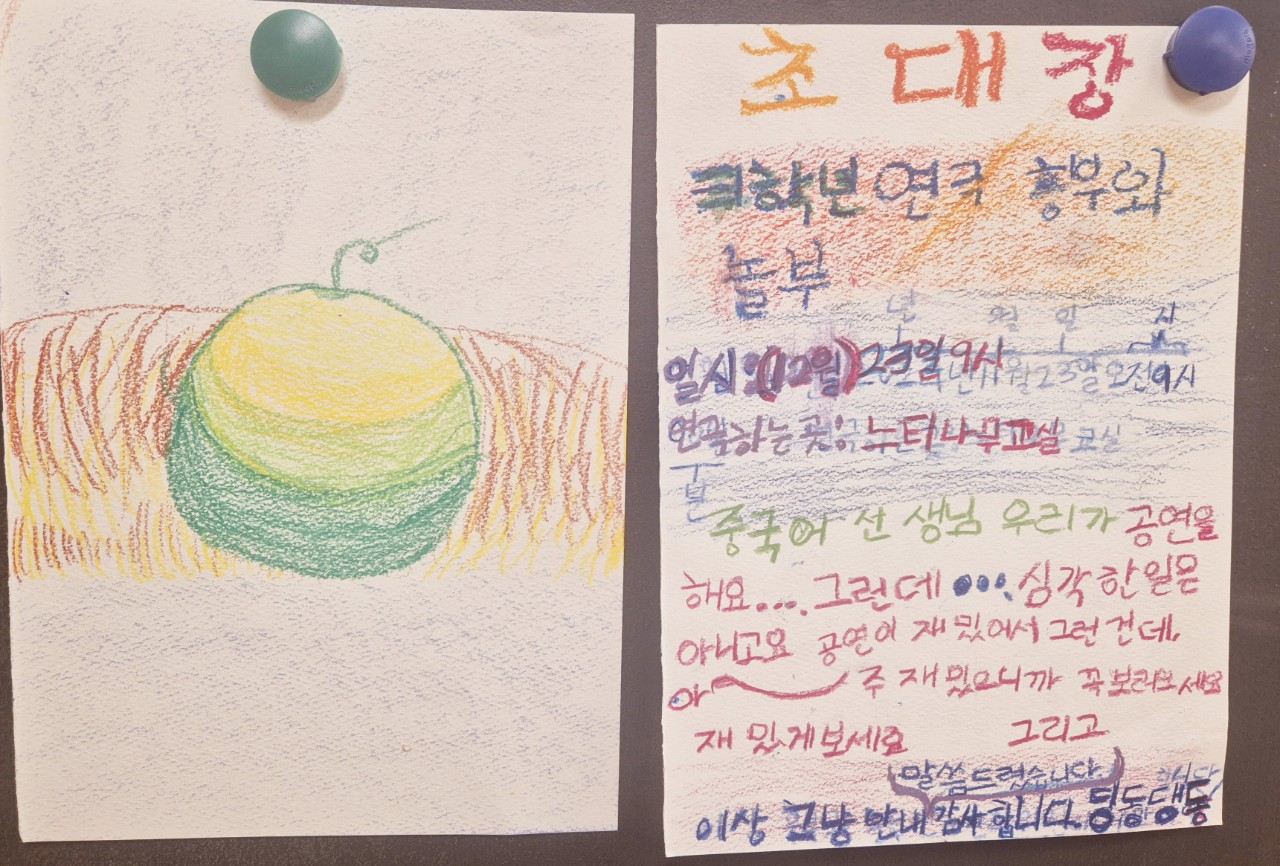 초대장
학년 연극 흥부와
놀부
년 월 일 시
일시:(12월)23일9시
연극하는곳: 느티나무교실
중국어 선생님 우리가 공연을
해요.... 그런데 ... 심각한일은
아니고요 공연이 재밌어서 그런건데,
아~주 재밌으니까 꼭보러오세요
재밌게보세요 그리고
말씀드렸습니다.
이상 그냥 안내 감사합니다. 딩동댕동